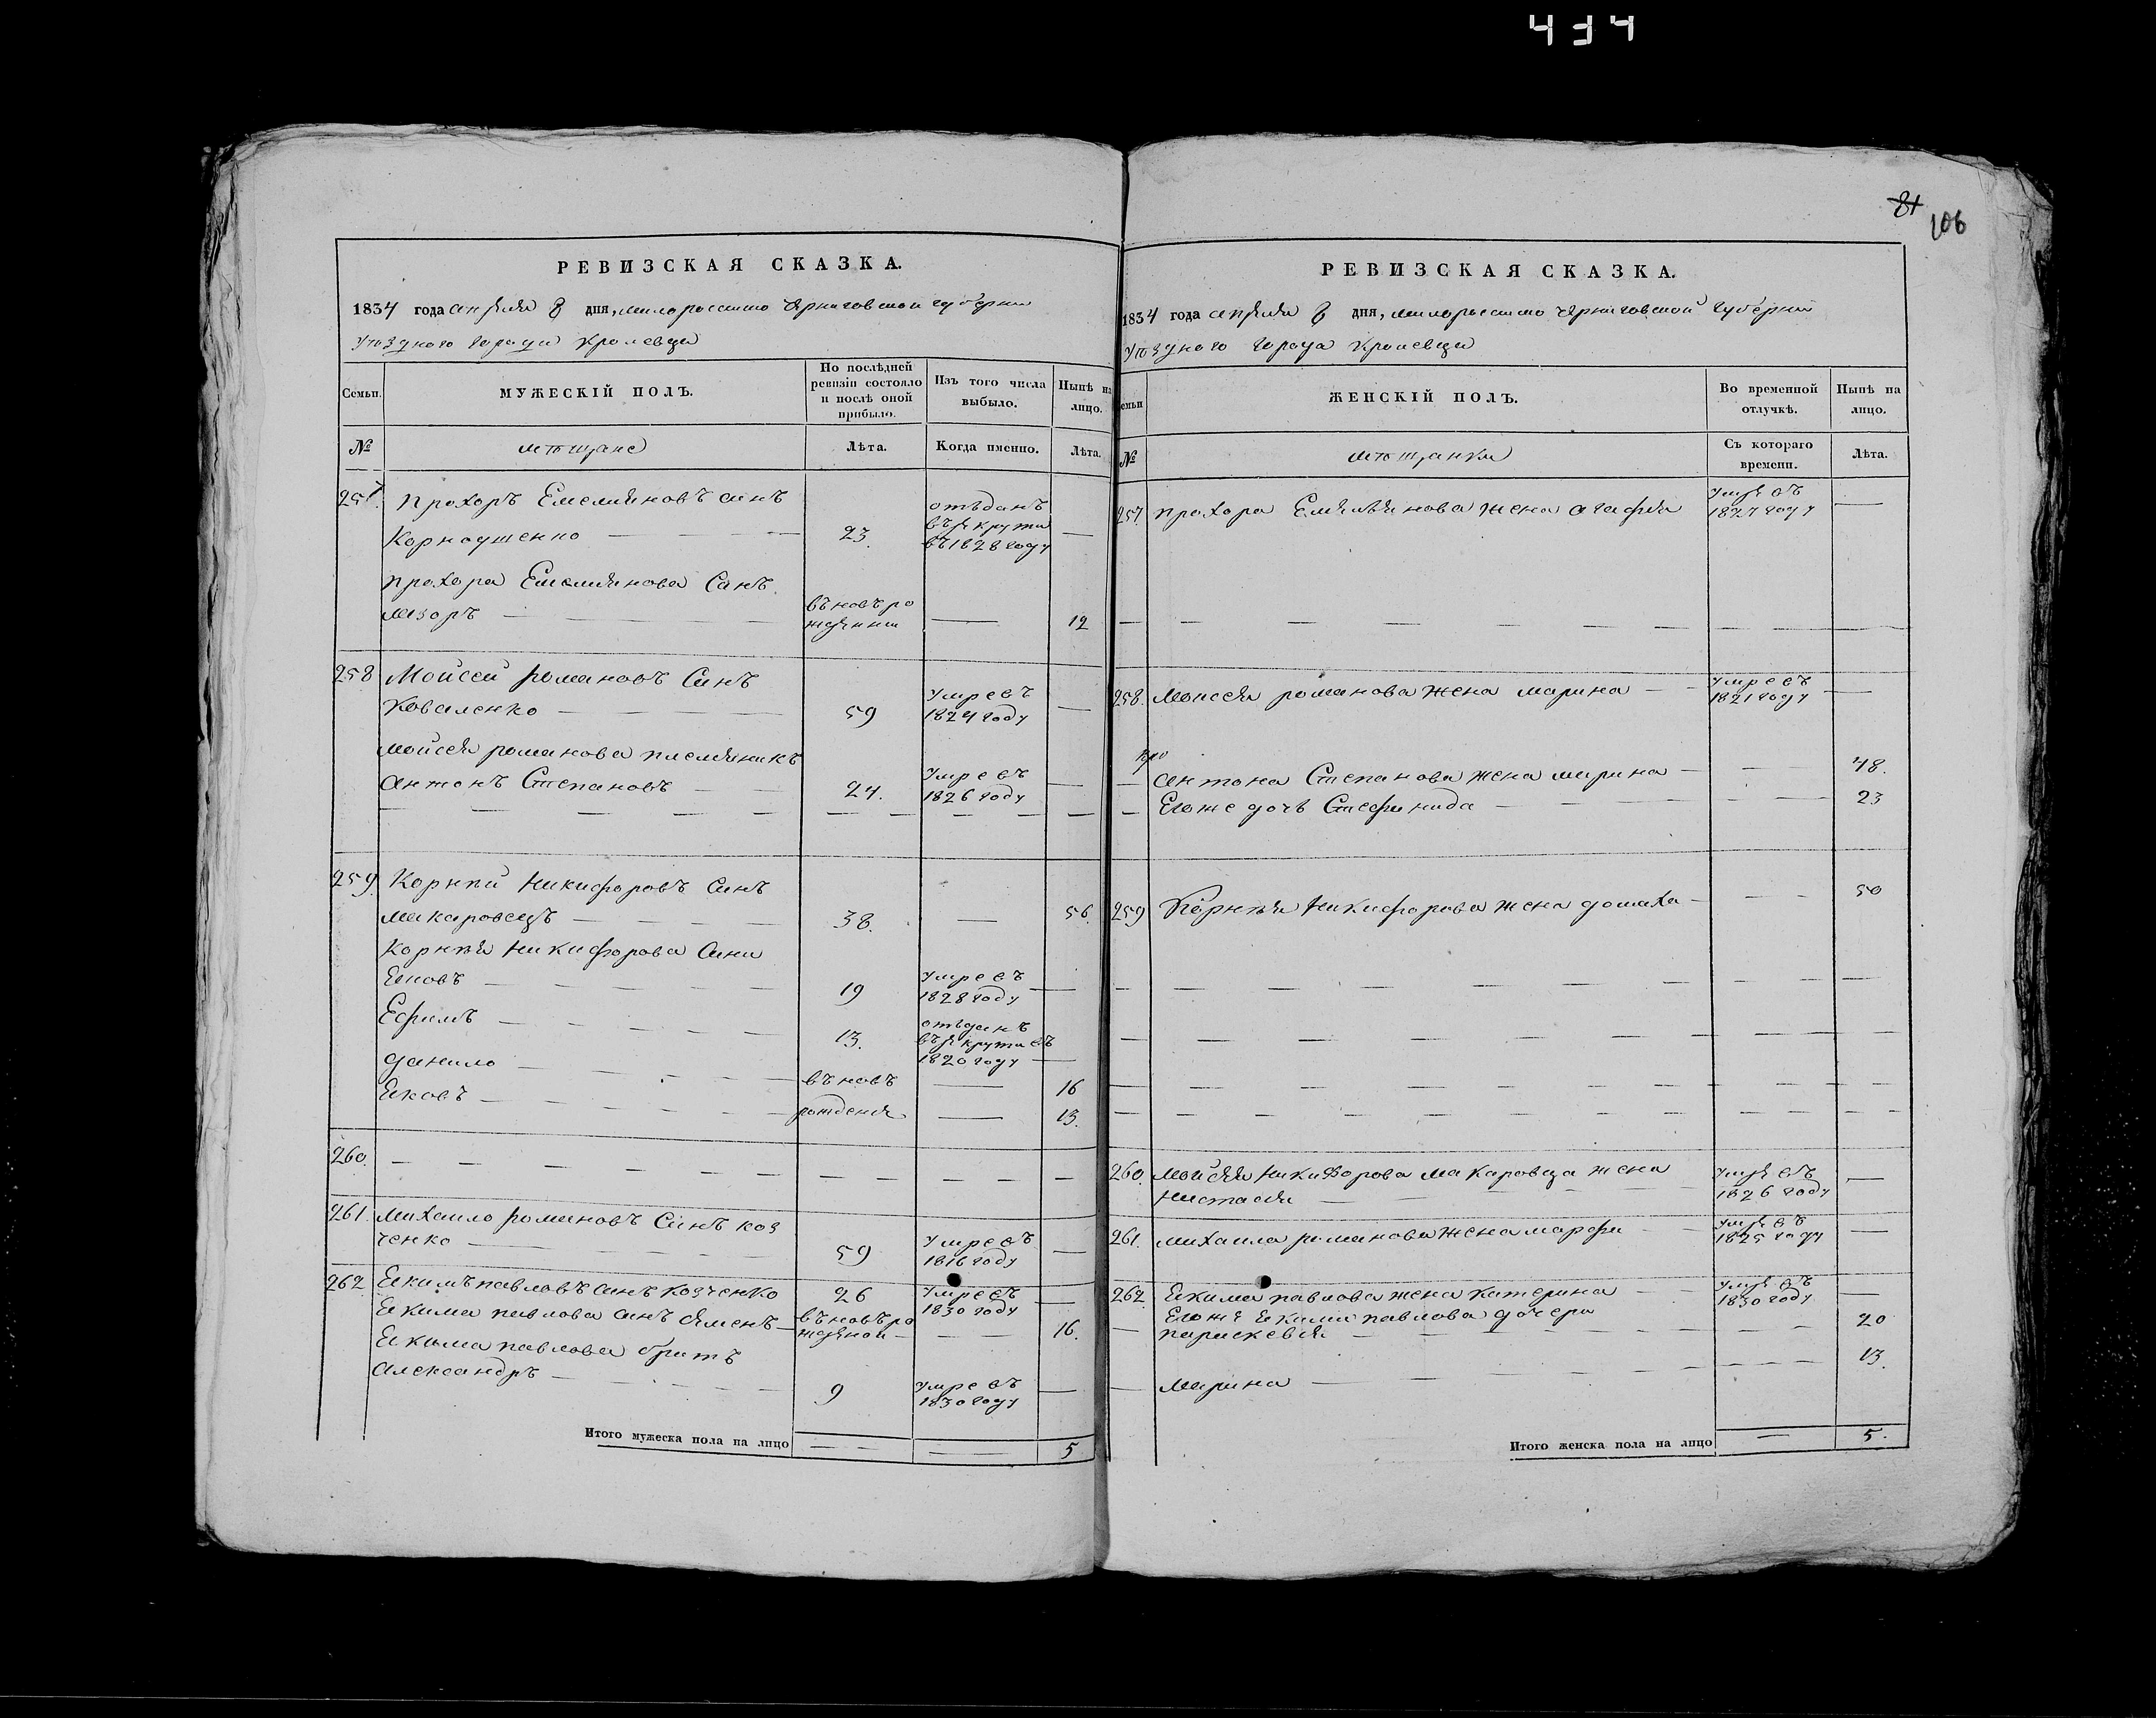 434
81
106
РЕВИЗСКАЯ СКАЗКА.
1834 года апреля 8 дня, малороссийско черниговской губернии
уъзднаго города Кролевца
Семьи. МУЖЕСКІЙ ПОЛЪ. По послѣдней ревизіи состояло и послѣ оной прибыло. Изъ того числа выбыло. Нынѣ на лицо.
№ мѣщане Лѣта. Когда именно. Лѣта.
257. Прохоръ Емелияновъ синъ
Корнаушенко — 23. отъданъ въ рекрути въ 1828 году —
прохора Емелиянова Синъ
Азоръ — въ новъ рожденни — 12
258 Мойсей романовъ Синъ
Коваленко — 59 умре въ 1824 году —
мойсея романова племяникъ
антонъ Степановъ — 24. умре въ 1826 году —
259. Корнѣй Никифоровъ Синъ
макаровецъ — 38. — 56.
Корнѣя Никифорова Сини
Яковъ — 19 умре въ 1828 году —
Ефимъ — 13. отъданъ въ рекрути въ 1820 году —
данило — въ новъ — 16
Яковъ — рожденя — 13.
260. —
261. михаило романовъ Синъ коз
ченко — 59 умре въ 1816 году —
262 Якимъ павловъ синъ козченко 26 умре въ 1830 году —
Якима павлова синъ семенъ — въ новъ рожденой — 16.
Якима павлова братъ
александръ — 9 умре въ 1830 году —
Итого мужеска пола на лицо — — 5
РЕВИЗСКАЯ СКАЗКА.
1834 года апреля 8 дня, малороссийско черниговской губернии
уъзднаго города Кролевца
Семьи ЖЕНСКІЙ ПОЛЪ. Во временной отлучкѣ. Нынѣ на лицо.
№ мѣщанки Съ котораго времени. Лѣта.
257. прохора Емелянова жена агафия умре въ 1827 году —
258. моисея романова жена марина — умре въ 1821 году —
антона Степанова жена марина — 48.
Егоже дочъ Стефанида — 23
259 Корнѣя Никифорова жена домаха — 50
260. мойсея Никифорова макаровца жена
Настасия — умре въ 1826 году —
261. михаила романова жена марфа — умре въ 1825 году —
262. Якима павлова жена катерина — умре въ 1830 году —
Егоже Якима павлова дочери
параскевия — 20
марина — 13.
Итого женска пола на лицо — 5.